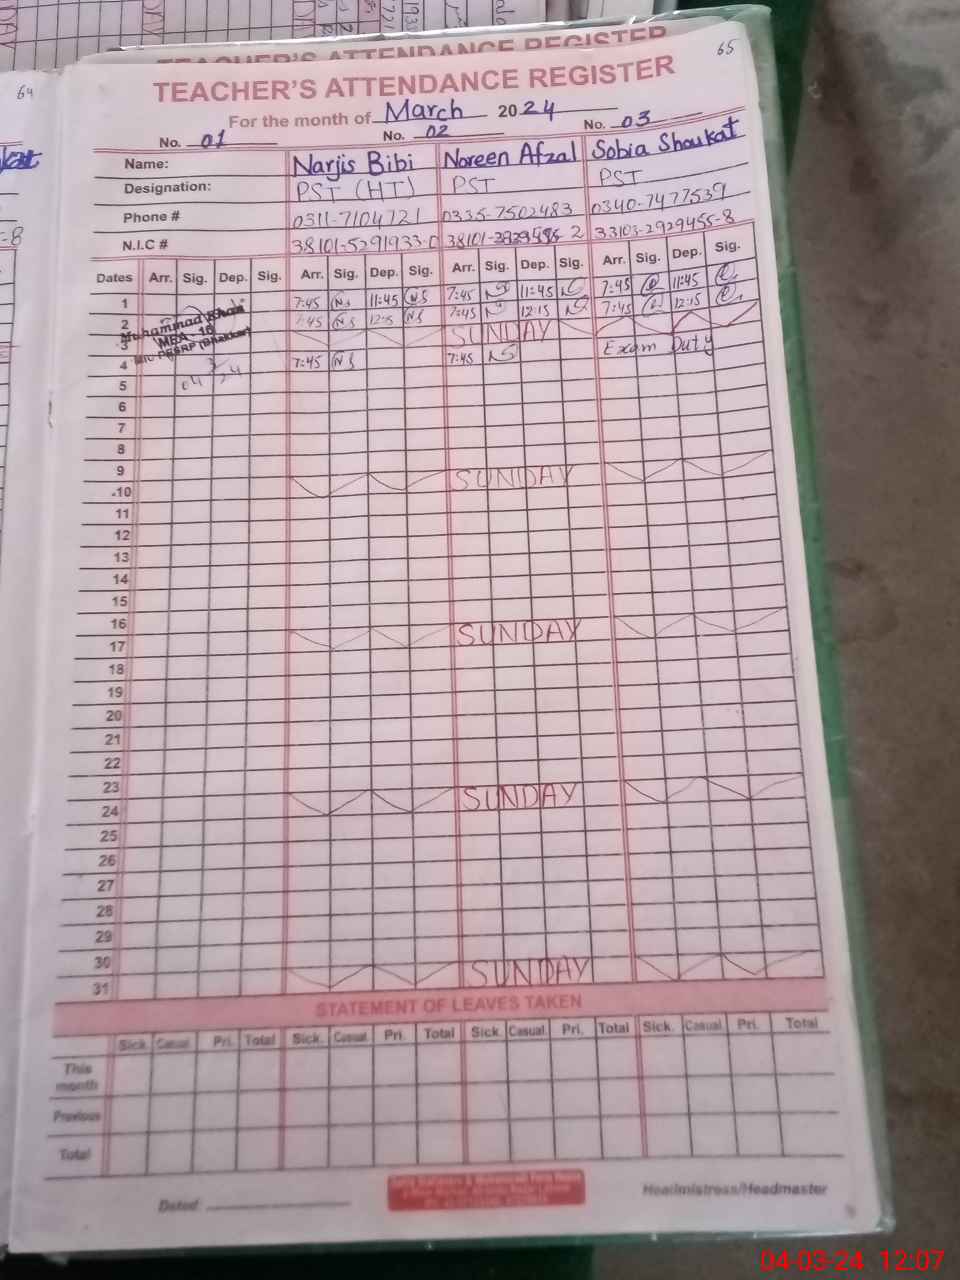 64
65
TEACHER'S ATTENDANCE REGISTER
TEACHER'S ATTENDANCE REGISTER
For the month of March 2024
No. 01 No. 02 No. 03
Name: Narjis Bibi Noreen Afzal Sobia Shoukat
Designation: PST (HT) PST PST
Phone # 0311-7104721 0335-7502483 0340-7477539
N.I.C # 38101-5291933-0 38101- 2 33103-2929455-8
Dates Arr. Sig. Dep. Sig. Arr. Sig. Dep. Sig. Arr. Sig. Dep. Sig. Arr. Sig. Dep. Sig.
1 7:45 NS 11:45 NS 7:45 NS 11:45 NS 7:45 11:45
2 7:45 NS 12:15 NS 7:45 NS 12:15 NS 7:45 12:15
Muhammad Khan
MEA - 16
PESRP (Bhakkar)
3 SUNDAY
4 7:45 NS 7:45 NS Exam Duty
04 3 24
5
6
7
8
9
10 SUNDAY
11
12
13
14
15
16
17 SUNDAY
18
19
20
21
22
23
24 SUNDAY
25
26
27
28
29
30
31 SUNDAY
STATEMENT OF LEAVES TAKEN
Sick. Casual Pri. Total Sick. Casual Pri. Total Sick. Casual. Pri. Total Sick. Casual Pri. Total
This month
Previous
Total
Dated: Headmistress/Headmaster
04-03-24 12:07